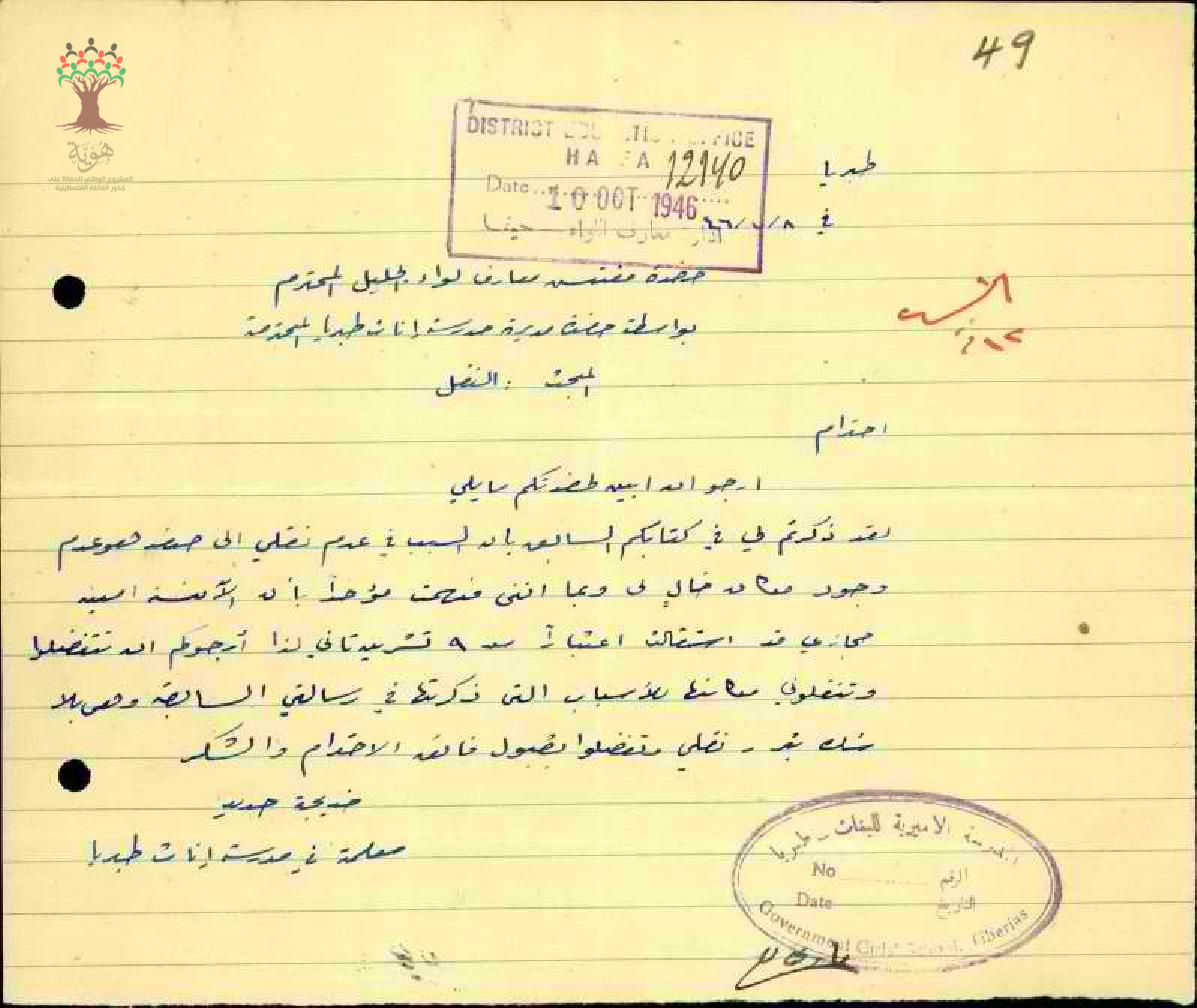 49
هوية
المشروع الوطني للحفاظ على
جذور العائلة الفلسطينية
DISTRICT OFFICE
HAIFA 12140
Date 10 OCT 1946
معارف اللواء حيفا
طبريا
في
حضرة مفتش معارف لواء الجليل المحترم
بواسطة حضرة مديرة مدرسة إناث طبريا المحترمة
المبحث : النقل
احترام
ارجو ان ابين لحضرتكم ما يلي
لقد ذكرتم لي في كتابكم السابق بان السبب في عدم نقلي الى صفد هو عدم
وجود مكان خالٍ لي وبما انني فهمت مؤخراً بأن الآنسة امينه
حجازي قد استقالت اعتباراً من ٩ تشرين تاني لذا أرجوكم ان تتفضلوا
وتنقلوني مكانها للأسباب التي ذكرتها في رسالتي السابقة وهي بلا
شك تبرر نقلي وتفضلوا بقبول فائق الاحترام والشكر
خديجة حديد
معلمة في مدرسة إناث طبريا
المدرسة الأميرية للبنات - طبريا
No الرقم
Date التاريخ
Government Girls' School, Tiberias